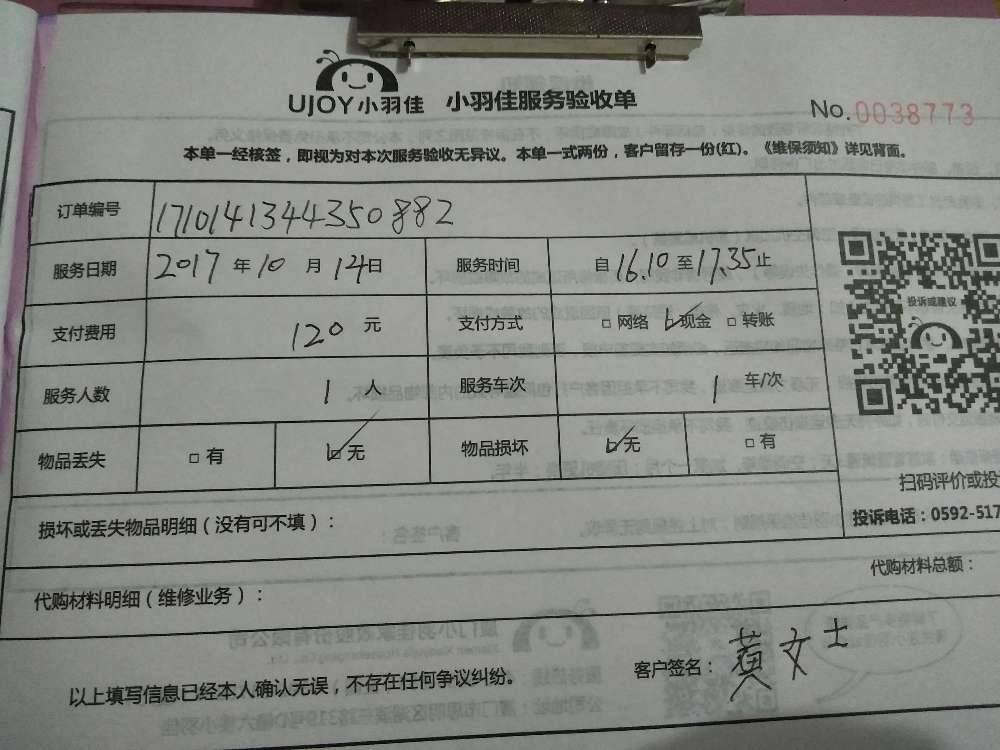 UJOY小羽佳 小羽佳服务验收单
No.0038773
本单一经核签，即视为对本次服务验收无异议。本单一式两份，客户留存一份(红)。《维保须知》详见背面。
订单编号 171014134435０882
服务日期 2017 年 10 月 14 日 服务时间 自 16.10 至 17.35 止
支付费用 120 元 支付方式 □ 网络 ☑ 现金 □ 转账
投诉或建议
服务人数 1 人 服务车次 1 车/次
物品丢失 □ 有 ☑ 无 物品损坏 ☑ 无 □ 有
扫码评价或投
损坏或丢失物品明细（没有可不填）：
投诉电话：0592-517
代购材料明细（维修业务）： 代购材料总额：
以上填写信息已经本人确认无误，不存在任何争议纠纷。 客户签名：黄文士